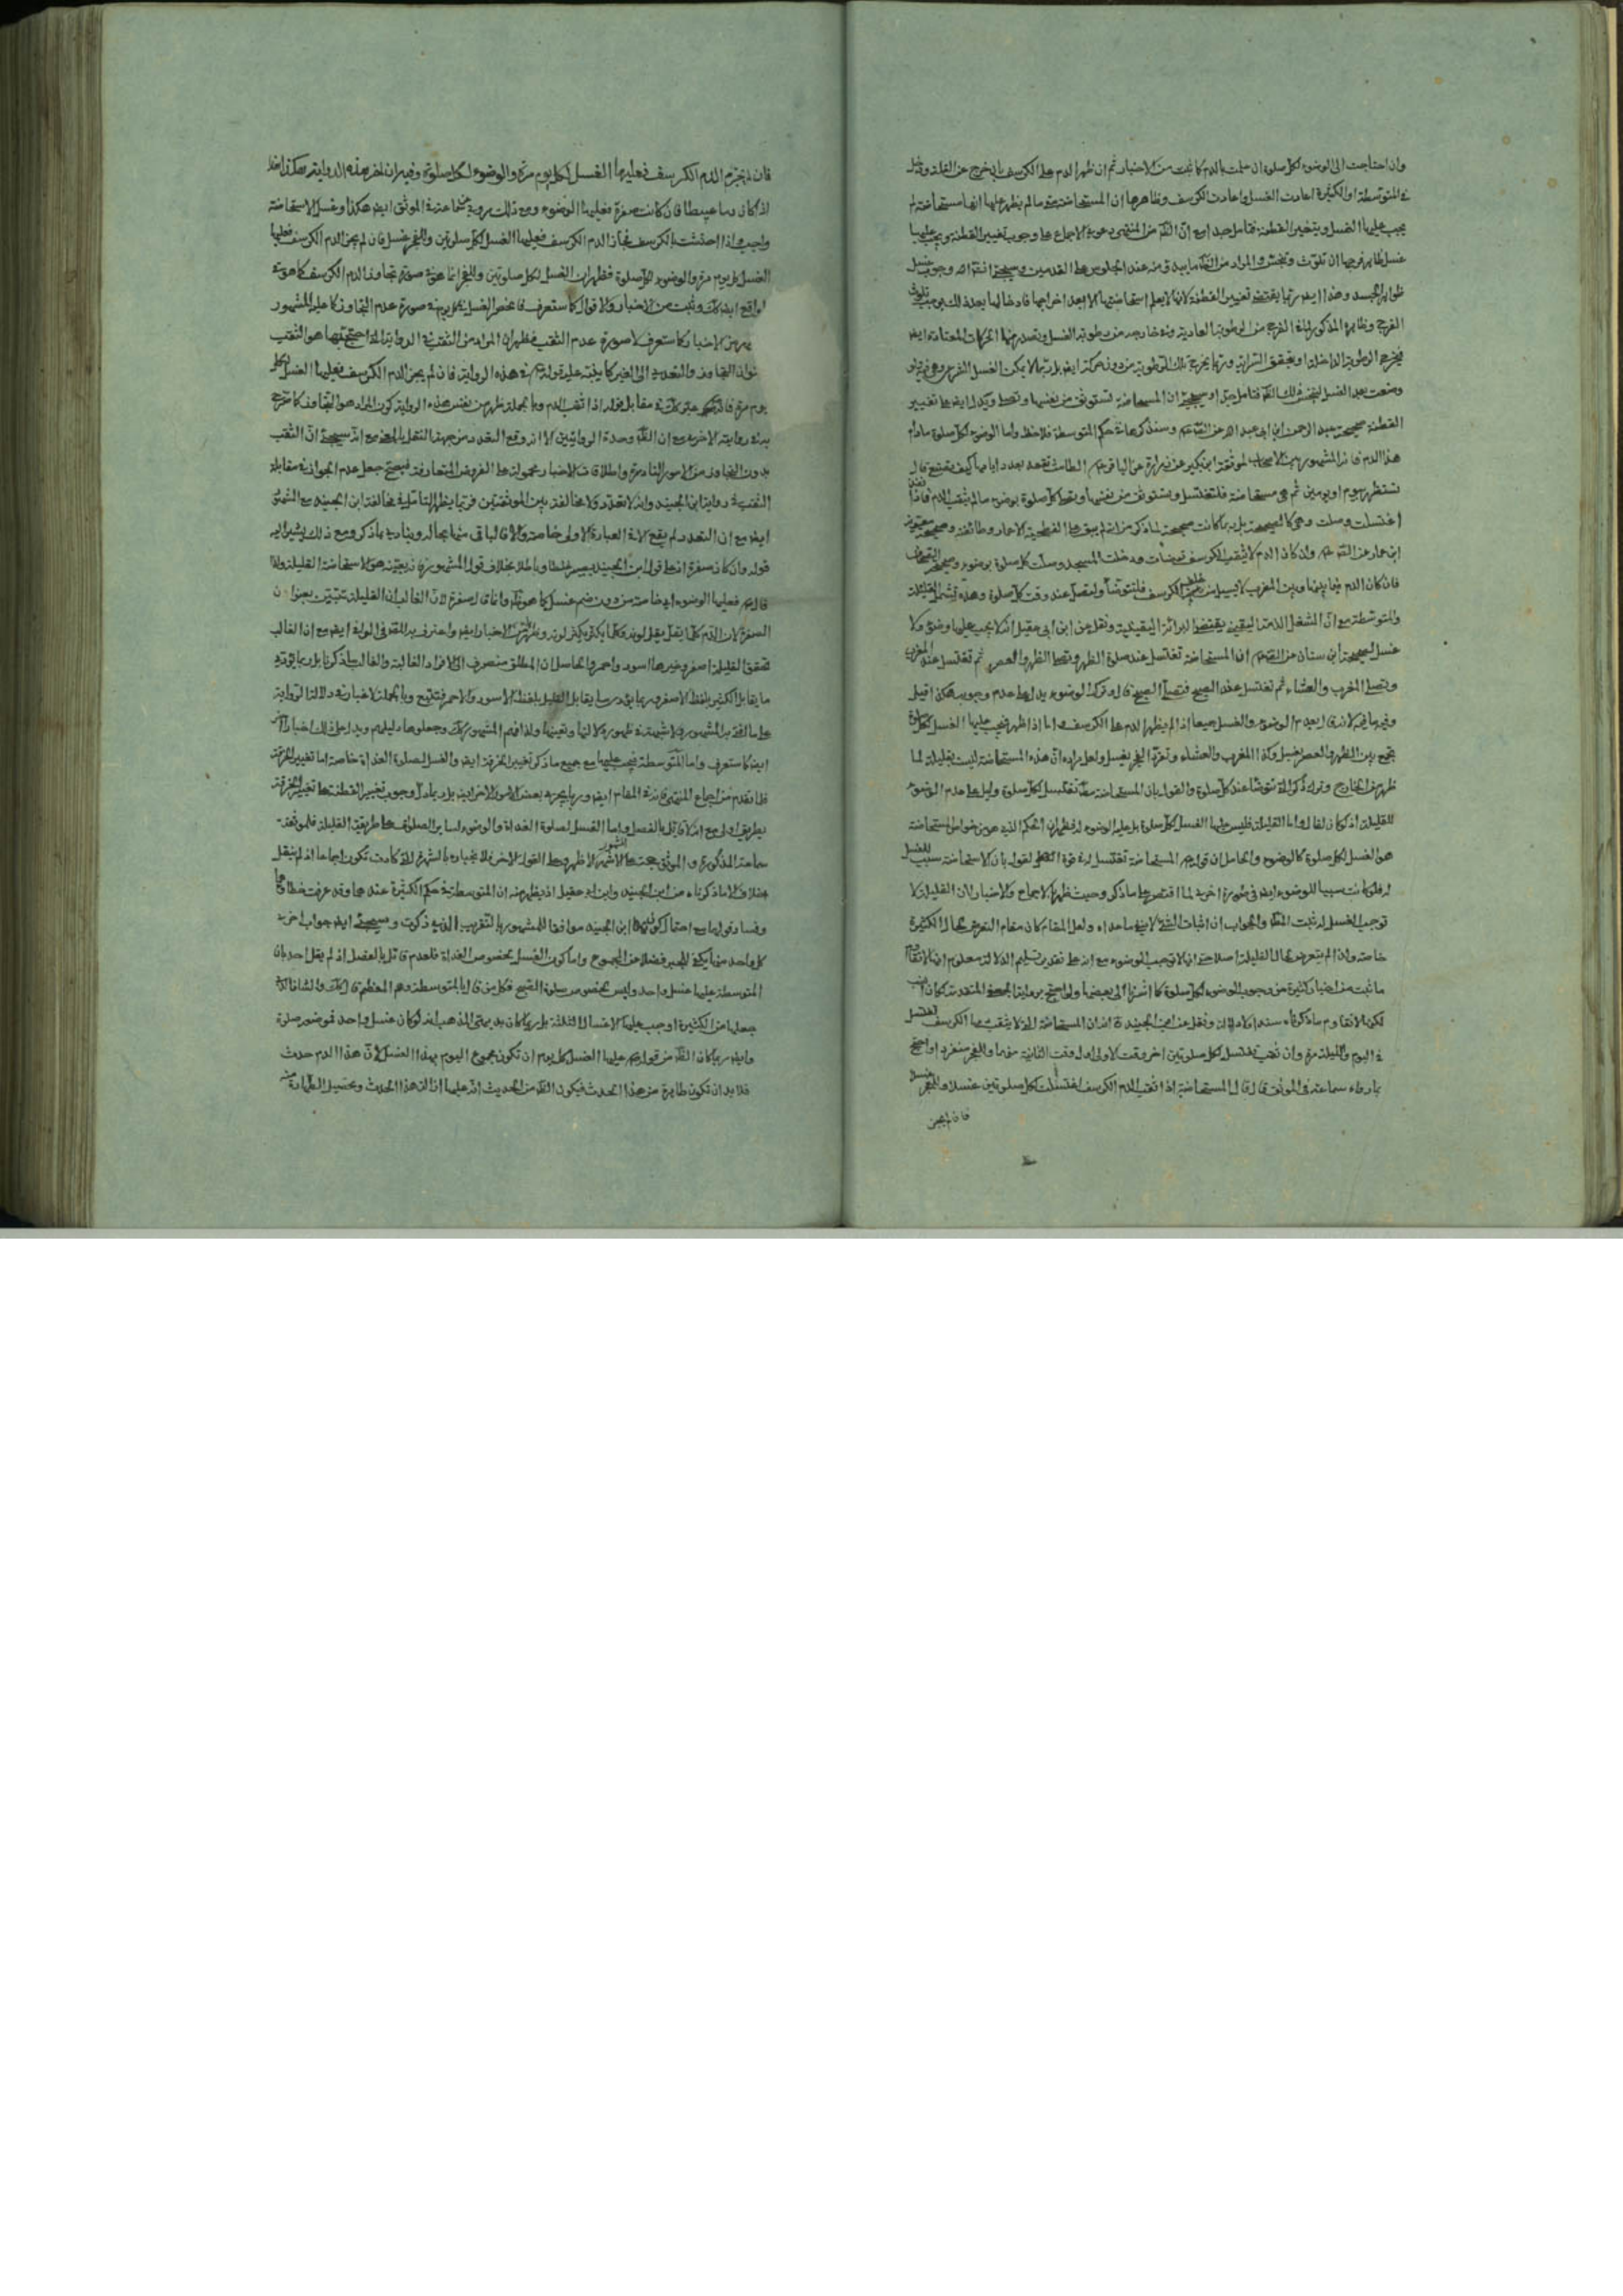 وان احتاجت الى الوضوء لكل صلوة ان علمت بالدم كما ثبت من الاخبار ثم ان ظهر الدم على الكرسف بان خرج عن القلة ودخل
فى المتوسطة او الكثيرة اعادت الغسل واعادت الكرسف وظاهرها ان المستحاضة متى ما لم يظهر عليها انها مستحاضة لم
يجب عليها الغسل وبتغيير القطنة فتامل جدا مع ان الظ من المنتهى دعوى الاجماع على وجوب تغيير القطنة ويجب عليها
غسل ظاهر فرجها ان تلوث وتنجس والمراد من الظ ما يبدو منه عند الجلوس على القدمين وسيجئ انشاء الله وجوب غسل
ظواهر الجسد وهذا ايض ربما يقتضى تغيير القطنة لانها لا يعلم استحاضتها الا بعد اخراجها فادخالها بعد ذلك يوجب تلوث
الفرج وظاهره المذكور لما فى الفرج من الرطوبة العادية وفى خارجه من رطوبة الغسل وتصدر منها الحركات المعتادة ايض
فيخرج الرطوبة الداخلة او يتحقق السراية وربما يخرج تلك الرطوبة من دون حركة ايض بل ربما لا يمكن الغسل الفرج وهى فيه ولو
وضعت بعد الغسل لتنجس ذلك الظ فتامل جدا وسيجئ ان المستحاضة تستوثق من نفسها وتصلى ويدل ايض على تغيير
القطنة صحيحة عبد الرحمن ابن ابى عبد الله عن الص عم وسنذكرها فى حكم المتوسطة فلاحظ واما الوضوء لكل صلوة مادام
هذا الدم فانه المشهور بين الاصحاب لموثقة ابن بكير عن زرارة عن الباقر عم الطامث تقعد بعدد ايامها كيف تصنع قال
تستظهر بيوم او يومين ثم هى مستحاضة فلتغتسل وتستوثق من نفسها وتصلى كل صلوة بوضوء ما لم يثقب الدم فاذا نفذ
اغتسلت وصلت وهى كالصحيحة بل ربما كانت صحيحة لما ذكر من انه لم يبق على الفطحية الا عمار وطائفته وصحيحة معوية
ابن عمار عن الص عم وان كان الدم لا يثقب الكرسف توضات ودخلت المسجد وصلت كل صلوة بوضوء وصحيحة الصحاف
فان كان الدم فيما بينها وبين المغرب لا يسيل من خلف الكرسف فلتتوضأ ولتصل عند وقت كل صلوة وهذه تشمل القليلة
والمتوسطة مع ان الشغل الذمة اليقينى يقتضى البرائة اليقينية ونقل عن ابن ابى عقيل انه لا يجب عليها وضوء ولا
غسل لصحيحة ابن سنان عن الص عم ان المستحاضة تغتسل عند صلوة الظهر وتصلى الظهر والعصر ثم تغتسل عند المغرب
وتصلى المغرب والعشاء ثم تغتسل عند الصبح فتصلى الصبح قال وترك الوضوء يدل على عدم وجوبه هكذا قيل
وفيه ما فيه لانه قال بعدم الوضوء والغسل جميعا اذا لم يظهر الدم على الكرسف واما اذا ظهر فيجب عليها الغسل لكل صلوة
تجمع بين الظهر والعصر بغسل وكذا المغرب والعشاء وتفرد الفجر بغسل ولعل مراده ان هذه المستحاضة ليست بقليلة لما
ظهر فى الخارج وترك ذكر انه تتوضأ عند كل صلوة والقول بان المستحاضة تغتسل لكل صلوة دليل على عدم الوضوء
للقليلة اذ لو كان لقال واما القليلة فليس عليها الغسل لكل صلوة بل عليه الوضوء له فظهر ان الحكم الذى هو من خواص المستحاضة
هو الغسل لكل صلوة كالوضوء والحاصل ان قوله عم المستحاضة تغتسل لم فى قوة القول بان الاستحاضة سبب للغسل
له فلو كانت سببا للوضوء ايض فى صورة اخرى لما اقتصر على ما ذكر وحيث ظهر بالاجماع والاخبار ان القليلة لا
توجب الغسل له ثبت المط والجواب ان اثبات الشئ لا ينفى ما عداه ولعل المقام كان مقام التعرض بحال الكثيرة
خاصة ولذا لم يتعرض بحال القليلة اصلا حتى انه لا توجب الوضوء مع انه على تقدير تسليم الدلالة معلوم انها لا تقاوم
ما ثبت من اخبار كثيرة من وجوب الوضوء لكل صلوة كما اشرنا الى بعضها ولو احتج برواية الجعفى المتقدمة لكان انسب
لكن لا تقاوم ما ذكرناه سندا ولا دلالة ونقل عن ابن الجنيد انه قال ان المستحاضة التى لا يثقب دمها الكرسف تغتسل
فى اليوم والليلة مرة وان ثقب تغتسل لكل صلوتين اخر وقت الاولى واول وقت الثانية منهما وللفجر منفردا واحتج
بما رواه سماعة فى الموثق قال قال المستحاضة اذا ثقب الدم الكرسف اغتسلت لكل صلوتين غسلا وللفجر غسل
فان لم يجز
فان لم يجز الدم الكرسف فعليها الغسل لكل يوم مرة والوضوء لكل صلوة وفيه ان اخر هذه الرواية هكذا هذا
اذ كان دما عبيطا فان كانت صفرة فعليها الوضوء ومع ذلك مروية عن سماعة فى الموثق ايض هكذا وغسل الاستحاضة
واجب واذا احتشت بالكرسف فجاز الدم الكرسف فعليها الغسل لكل صلوتين وللفجر غسل فان لم يجز الدم الكرسف فعليها
الغسل لكل يوم مرة والوضوء لكل صلوة فظهر ان الغسل لكل صلوتين وللفجر انما هو فى صورة تجاوز الدم الكرسف كما هو فى
الواقع ايض كك وثبت من الاخبار والاقوال كما ستعرف فانحصر الغسل فى كل يوم فى صورة عدم التجاوز كما عليه المشهور
من الاخبار كما ستعرف لا صورة عدم الثقب فظهر ان المراد من الثقب فى الرواية التى احتج بها هو الثقب
التجاوز والتعدى الى الغير كما ينبه عليه قوله عم فى هذه الرواية فان لم يجز الدم الكرسف فعليها الغسل لكل
يوم مرة فانه فى مقابل قوله اذا ثقب الدم وبالجملة ظهر من نفس هذه الرواية كون المراد هو التجاوز كما صرح
به فى روايته الاخرى مع ان الظ وحدة الروايتين الا انه وقع التعدد من جهة النقل بالمعنى مع انه سيجئ ان الثقب
بدون التجاوز من الامور النادرة واطلاقات الاخبار محمولة على الفروض المتعارفة فيصح جعل عدم الجواز فى مقابلة
الثقب فى رواية ابن الجنيد وانه لا تعدد ولا مخالفة بين الموثقتين فربما يظهر التامل فى مخالفة ابن الجنيد مع المشهور
ايض مع ان التعدد لم يقع الا فى العبارة الاولى خاصة والا فالباقى منها بحاله وينادى بما ذكر ومع ذلك يشير اليه
قوله وان كان صفرة اذ على قول ابن الجنيد يصير غلطا وباطلا بخلاف قول المشهور فانه بعينه هو الاستحاضة القليلة ولذا
قال عم فعليها الوضوء اى خاصة من دون ضم غسل كما هو الظ وانما قال صفرة لان الغالب ان القليلة تتبين بعنوان
الصفرة لان الدم كلما يقل يقل لونه وكلما يكثر يكثر لونه وظهر من الاخبار ايض واعترف به المقر فى الوافى ايض مع ان الغالب
تحقق القليلة اصفر وغيرها اسود واحمر والحاصل ان المطلق منصرف الى الافراد الغالبة والغالب ما ذكرنا بل ربما يؤتى
ما يقابل الكثير بلفظ الاصفر وربما يؤتى ما يقابل القليل بلفظ الاسود والاحمر فتتبع وبالجملة لا غبار فى دلالة الرواية
على ما افتى به المشهور ولا شبهة فى ظهور دلالتها وتعينها ولذا فهم المشهور كك وجعلوها دليلهم ويدل على ذلك اخبار اخر
ايض كما ستعرف واما المتوسطة فيجب عليها مع جميع ما ذكر تغيير الخرقة ايض والغسل لصلوة الغداة خاصة اما تغيير الخرقة
فلما تقدم من اجماع المنتهى فانه فى المقام ايض وربما يجرى بعض الامور الاخر ايض بل ربما دل وجوب تغيير القطنة على تغيير الخرقة
بطريق اولى مع انه لا قائل بالفصل واما الغسل لصلوة الغداة والوضوء لساير الصلوات على طريقة القليلة فلموثقة
سماعة المذكورة والموثق حجة على الاشهر الاظهر وعلى القول الاخر فلانجباره بالشهرة التى كادت تكون اجماعا اذ لم ينقل
خلاف الا ما ذكرناه من ابن الجنيد وابن ابى عقيل اذ يظهر منه ان المتوسطة فى حكم الكثيرة عندهما وقد عرفت خطاؤهما
وفساد قولهما مع احتمال كون ابن الجنيد موافقا للمشهور بالتقريب الذى ذكرت وسيجئ ايض جواب اخر
كل واحد منها يكفى للجبر فضلا عن المجموع واما كون الغسل بخصوص الغداة فلعدم قائل بالفصل اذ لم يقل احد بان
المتوسطة عليها غسل واحد وليس بخصوص صلوة الصبح فكل من قال بالمتوسطة وهم المعظم قال كك والشاذ الذى
جعلها من الكثيرة اوجب عليها الاغسال الثلثة بل ربما كان بديهى المذهب انه لو كان غسل واحد فموضعه صلوة
وايض ربما كان الظ من قوله عم عليها الغسل كل يوم ان تكون مجموع اليوم بهذا الغسل لان هذا الدم حدث
فلا بد ان تكون طاهرة من هذا الحدث فيكون الظ من الحديث انه عليها ازالة هذا الحدث وتحصيل الطهارة منه